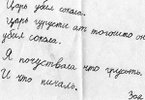 Царь убил сокола.
Царь грусти от того что он
убил сокола.
Я почуствовала что грусть.
И что печаль.
Зоя